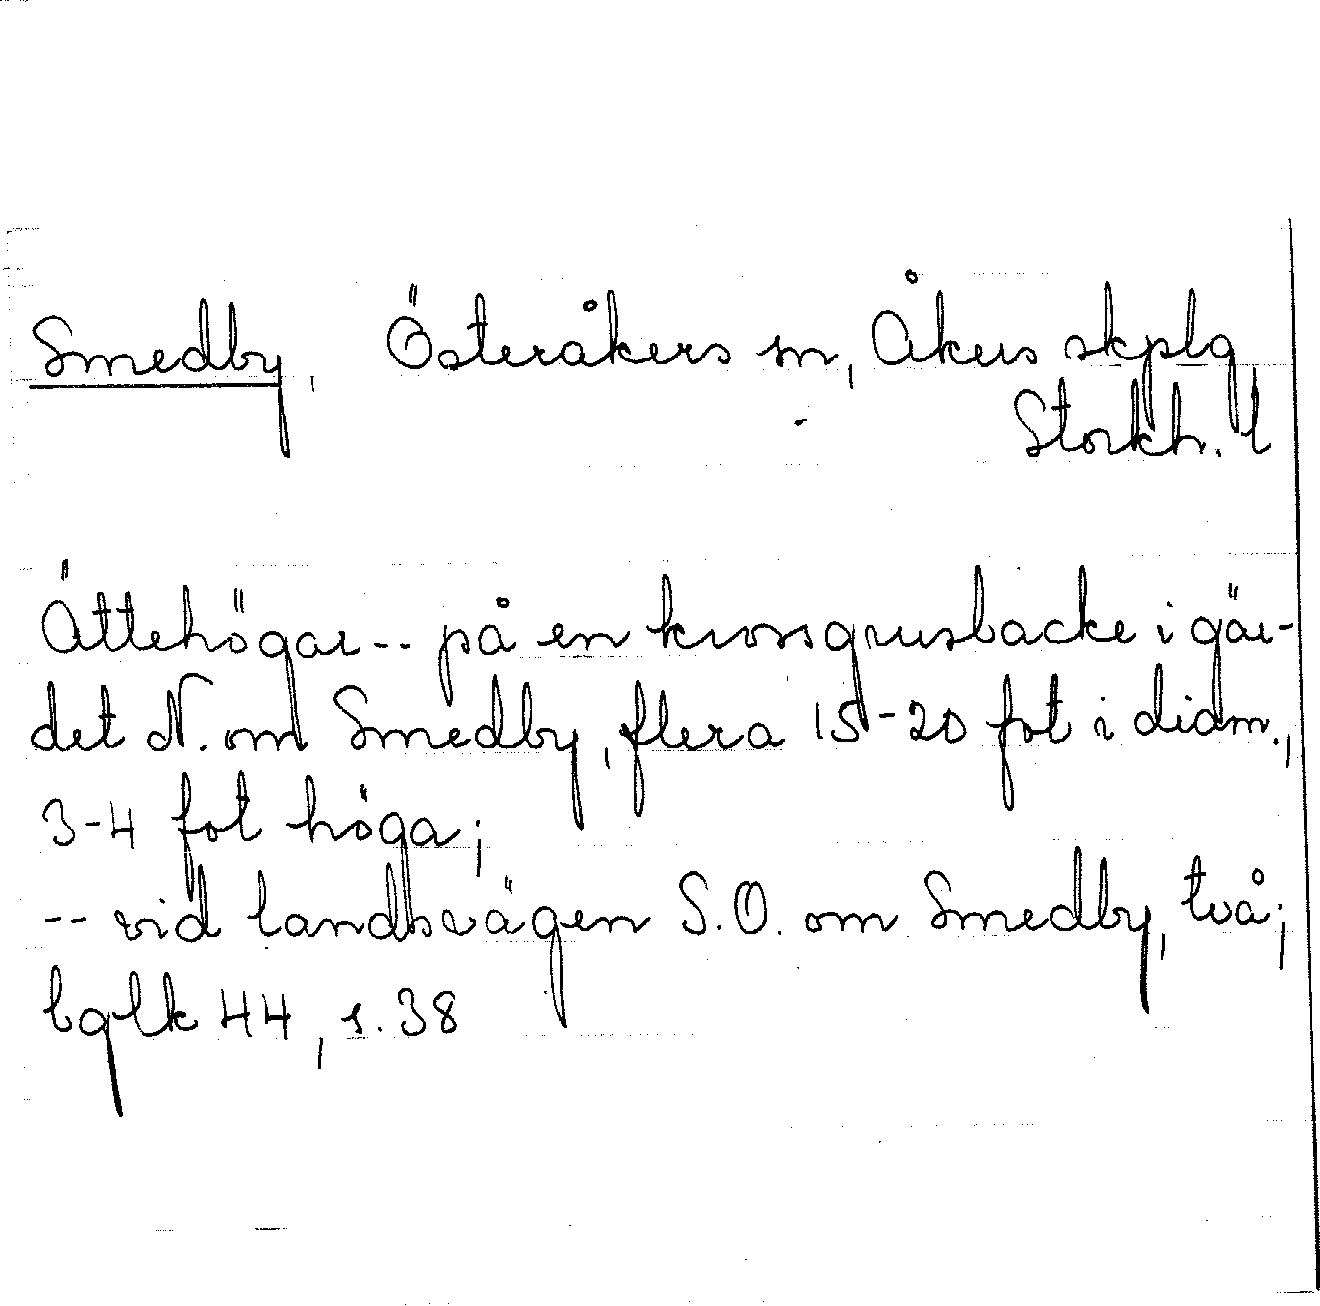 Smedby, Österåkers sn, Åkers skplg
Stockh. l
Ättehögar -- på en krossgrusbacke i gär-
det N. om Smedby, flera 15-20 fot i diam.,
3-4 fot höga;
-- vid landsvägen S.O. om Smedby, två;
bglk 44, s. 38